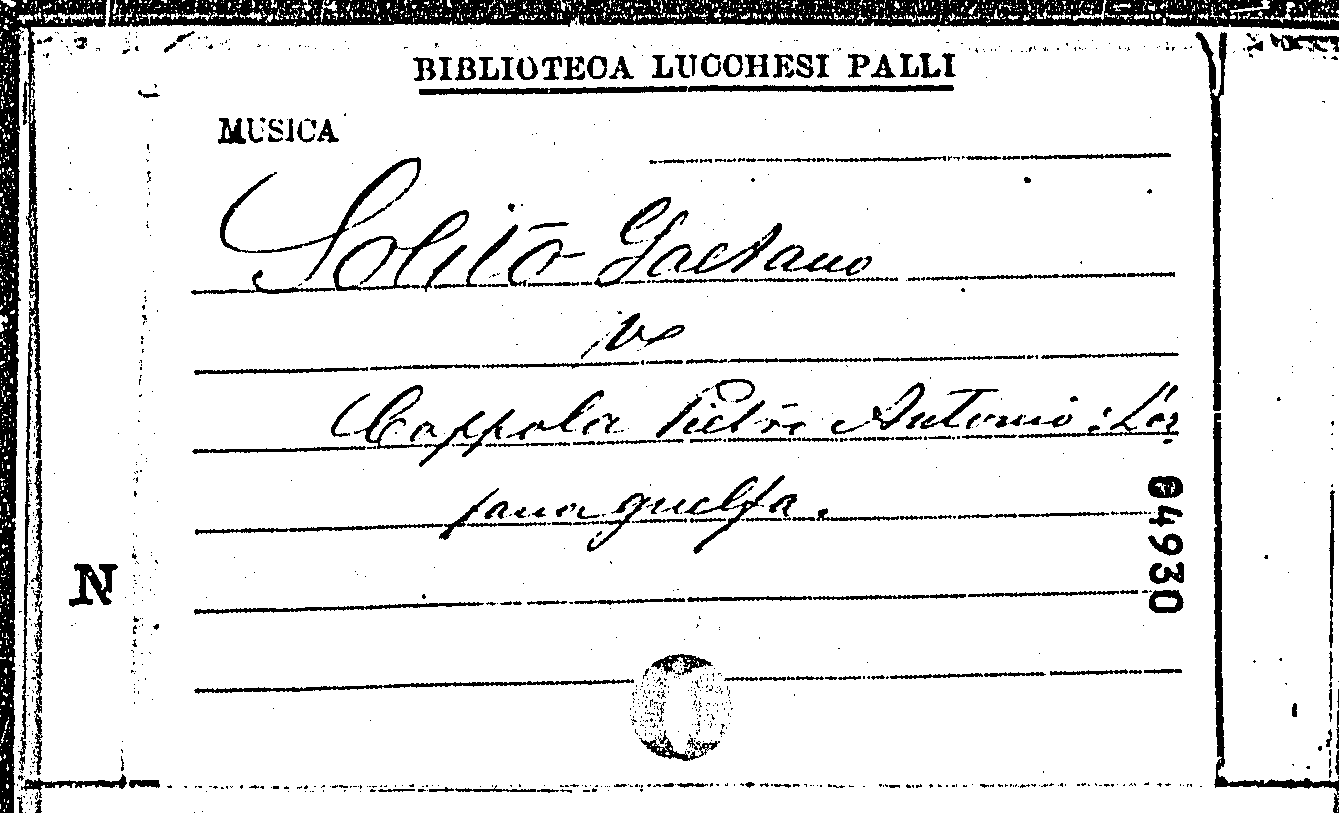 BIBLIOTECA LUCCHESI PALLI
MUSICA
Solito Gaetano
Ve
Coppola Pietro Antonio: L'or
fana guelfa.
N
04930